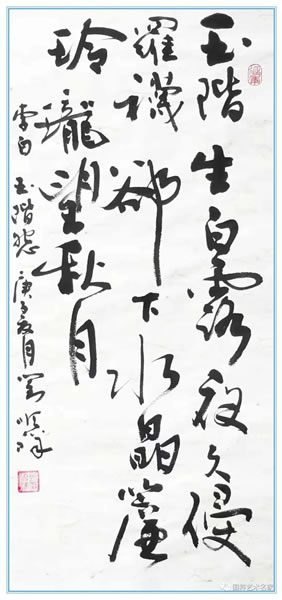 玉階生白露夜久侵
羅襪卻下水晶簾
玲瓏望秋月
李白 玉階怨 庚子夏月